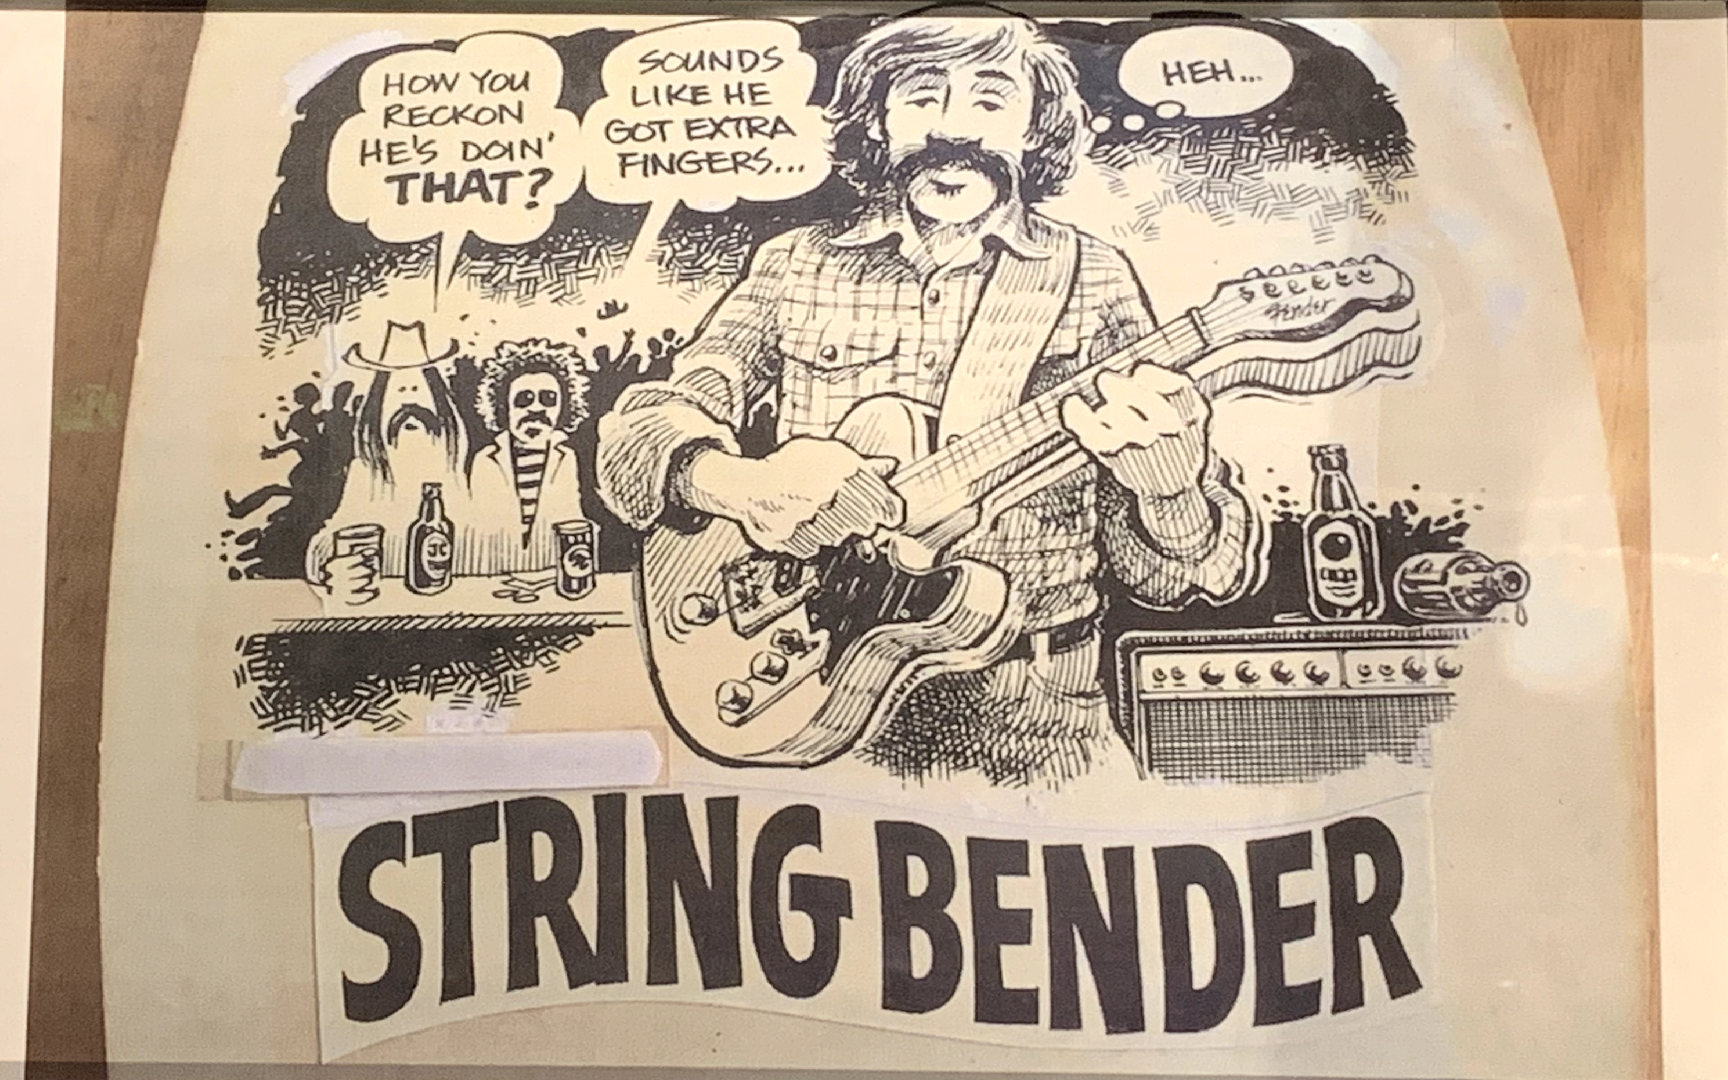 HOW YOU
RECKON
HE'S DOIN'
THAT?
SOUNDS
LIKE HE
GOT EXTRA
FINGERS...
HEH...
Fender
JC
STRING BENDER